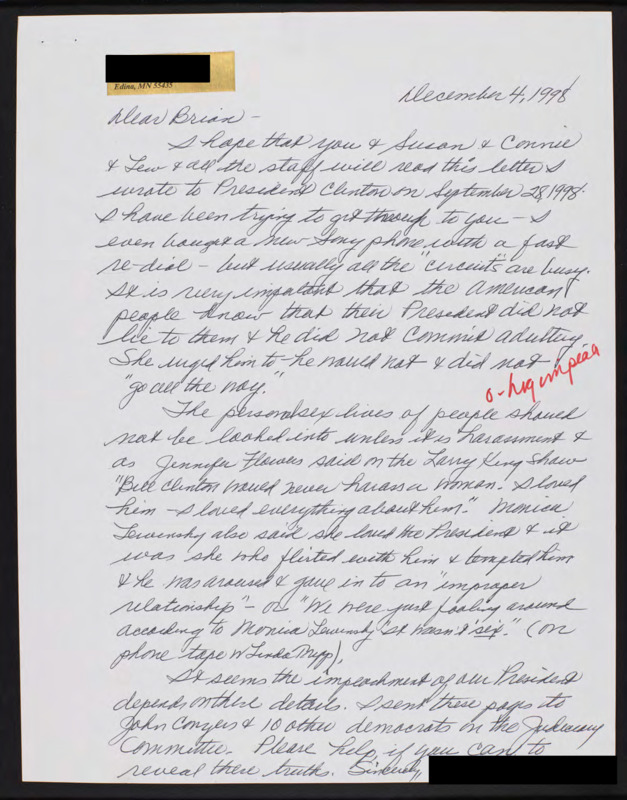 Edina, MN 55435
December 4, 1998
Dear Brian -
I hope that you & Susan & Connie
& Lew & all the staff will read this letter I
wrote to President Clinton on September 28, 1998.
I have been trying to get through to you - I
even bought a new Sony phone with a fast
re-dial - but usually all the "circuits" are busy.
It is very important that the American
people know that their President did not
lie to them & he did not commit adultery
She urged him to - he would not & did not
"go all the way."
The personal sex lives of people should
not be looked into unless it is harassment &
as Jennifer Flowers said on the Larry King Show
"Bill Clinton would never harass a woman. I loved
him - I loved everything about him." Monica
Lewinsky also said she loved the President & it
was she who flirted with him & tempted him
& he was around & gave in to an "improper
relationship" - or "We were just fooling around
according to Monica Lewinsky "it wasn't sex." (on
phone tape w Linda Tripp).
It seems the impeachment of our President
depends on these details. I sent these pages to
John Conyers & 10 other democrats on the Judiciary
Committee. Please help if you can to
reveal these truths. Sincerely,